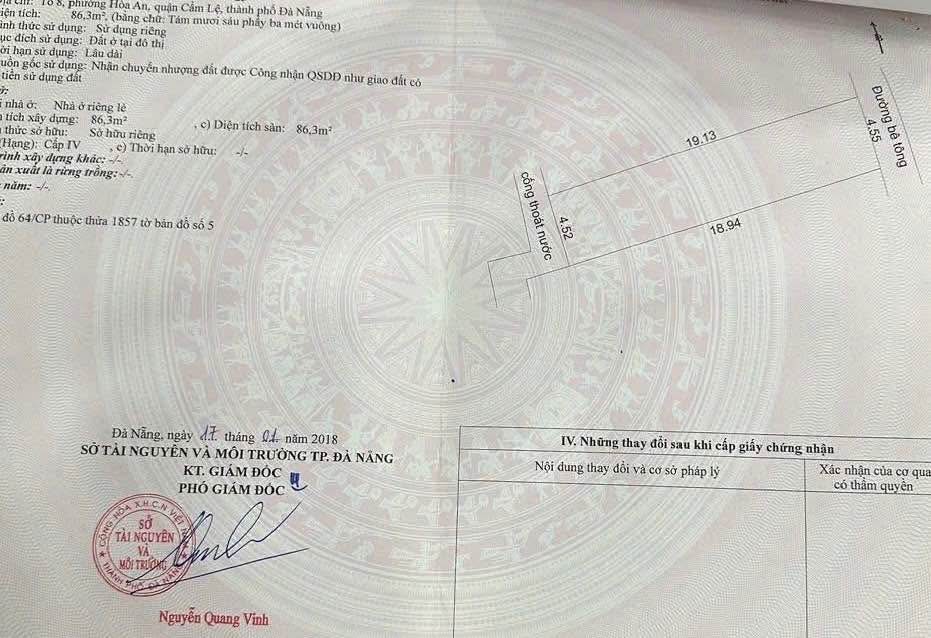 Tổ 8, phường Hòa An, quận Cẩm Lệ, thành phố Đà Nẵng
86,3m², (bằng chữ: Tám mươi sáu phẩy ba mét vuông)
thức sử dụng: Sử dụng riêng
đích sử dụng: Đất ở tại đô thị
hạn sử dụng: Lâu dài
gốc sử dụng: Nhận chuyển nhượng đất được Công nhận QSDĐ như giao đất có
tiền sử dụng đất
nhà ở: Nhà ở riêng lẻ
tích xây dựng: 86,3m² , c) Diện tích sàn: 86,3m²
thức sở hữu: Sở hữu riêng
(Hạng): Cấp IV , e) Thời hạn sở hữu: -/-
trình xây dựng khác: -/-
xuất là rừng trồng: -/-
năm: -/-
đồ 64/CP thuộc thửa 1857 tờ bản đồ số 5
19.13
Đường bê tông
4.55
cống thoát nước
4.52
18.94
Đà Nẵng, ngày 17 tháng 01 năm 2018
SỞ TÀI NGUYÊN VÀ MÔI TRƯỜNG TP. ĐÀ NẴNG
KT. GIÁM ĐỐC
PHÓ GIÁM ĐỐC
CỘNG HÒA X.H.C.N VIỆT
SỞ
TÀI NGUYÊN
VÀ
MÔI TRƯỜNG
THÀNH PHỐ ĐÀ NẴNG
Nguyễn Quang Vinh
IV. Những thay đổi sau khi cấp giấy chứng nhận
Nội dung thay đổi và cơ sở pháp lý
Xác nhận của cơ qua
có thẩm quyền